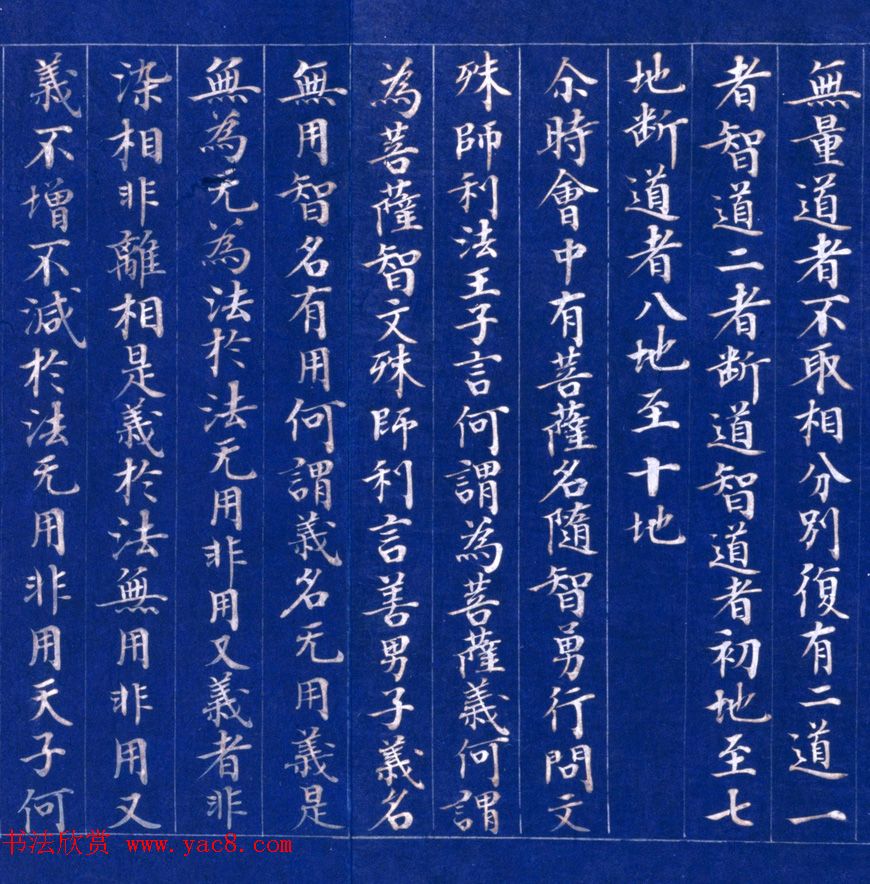 無量道者不取相分別復有二道一
者智道二者断道智道者初地至七
地断道者八地至十地
尒時會中有菩薩名隨智勇行問文
殊師利法王子言何謂為菩薩義何謂
為菩薩智文殊師利言善男子義名
無用智名有用何謂義名无用義是
無為无為法於法无用非用又義者非
染相非離相是義於法無用非用又
義不增不減於法无用非用天子何
书法欣赏 www.yac8.com